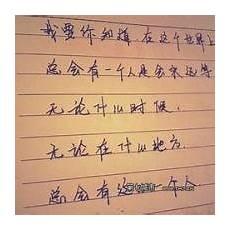 我要你知道，在这个世界上
总会有一个人是会永远等
无论什么时候，
无论在什么地方
总会有这 个人